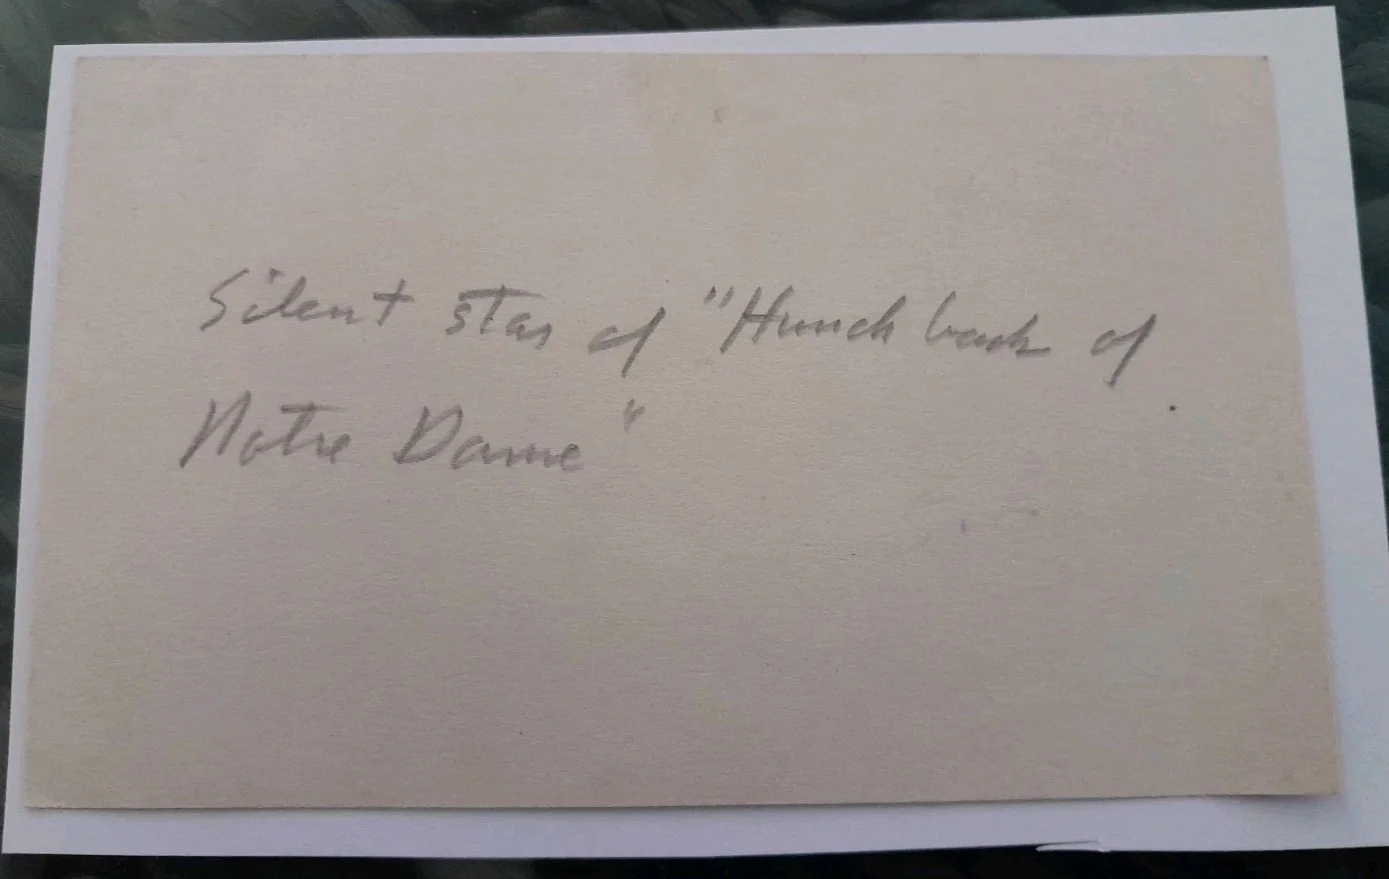 Silent star of "Hunch back of
Notre Dame"